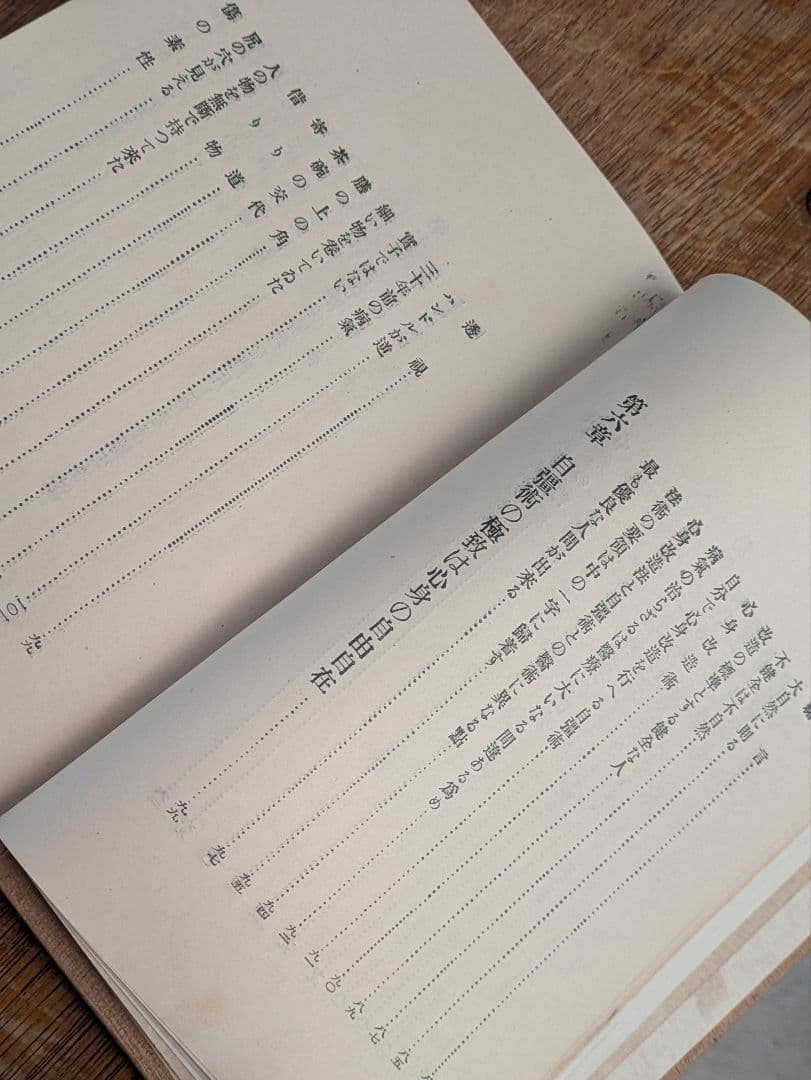 言
大自然に則る……八五
不健全は不自然……八七
改造の標準とする健全な人……八九
心身改造術……九〇
自分で心身改造を行へる自彊術……九一
病氣の治らざるは醫療に大いなる間違ある爲め……九二
心身改造法と自彊術との醫術に異なる點……九四
法術の要領は中の一字に歸着す……九五
最も優良な人間が出來る……九七
第六章 自彊術の極致は心身の自由自在……九九
透視……九九
ハンドルが道……一〇
三十年前の病氣……
實子ではない……
細い物を卷いてゐた……
膳の上の角……
茶碗の交代……
寄り道……
借り物……
人の物を無斷で持つて來た……
尻の穴が見える……
傷の素性……